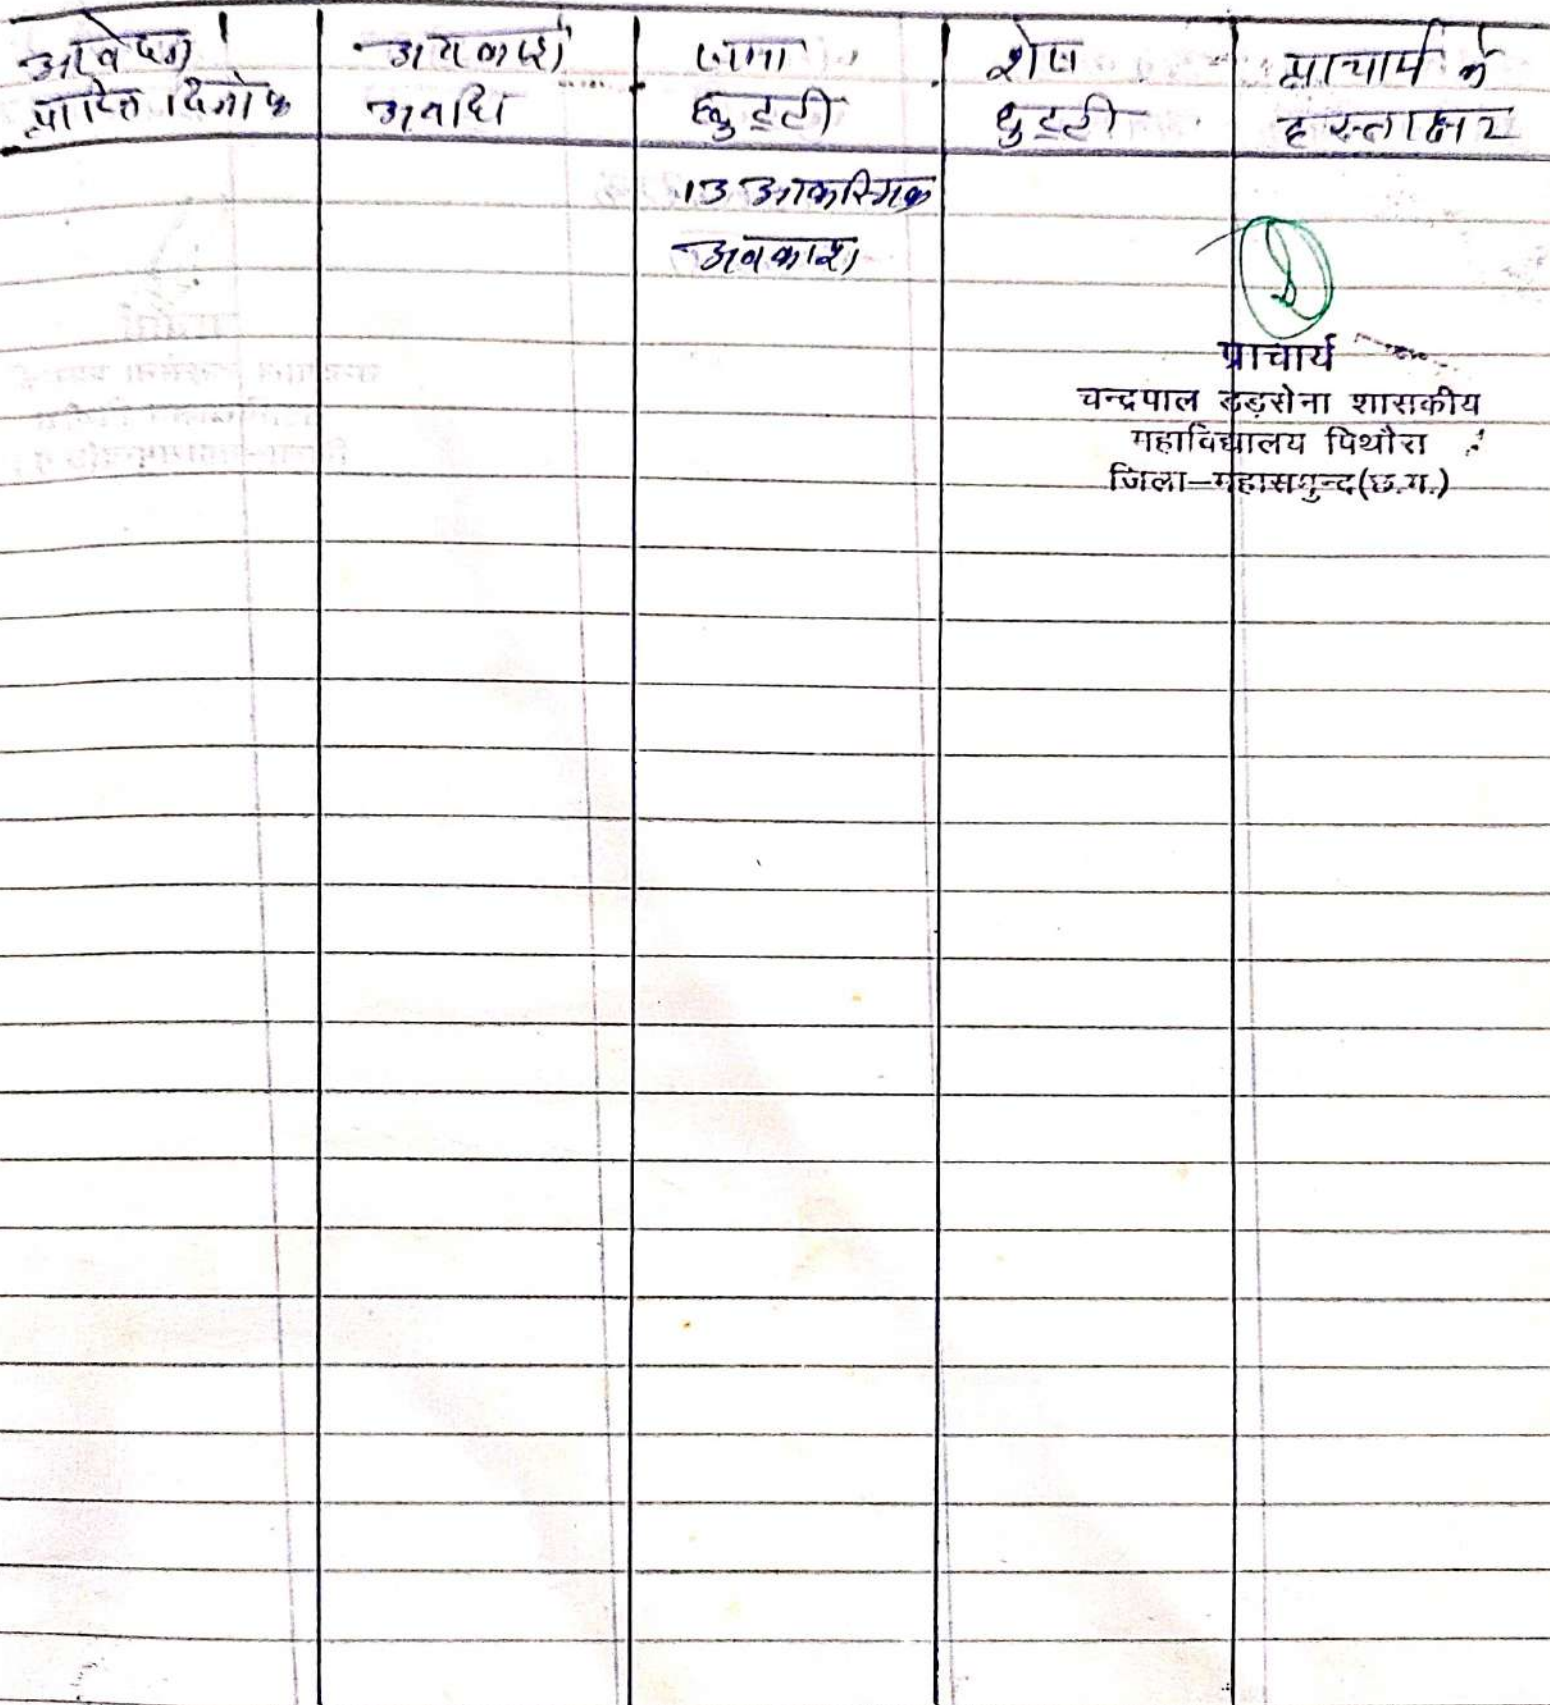 आवेदन
प्राप्ति दिनांक
अवकाश
अवधि
जमा
छुट्टी
शेष
छुट्टी
प्राचार्य के
हस्ताक्षर
13 आकस्मिक
अवकाश
प्राचार्य
चन्द्रपाल डड़सेना शासकीय
महाविद्यालय पिथौरा
जिला–महासमुन्द(छ.ग.)